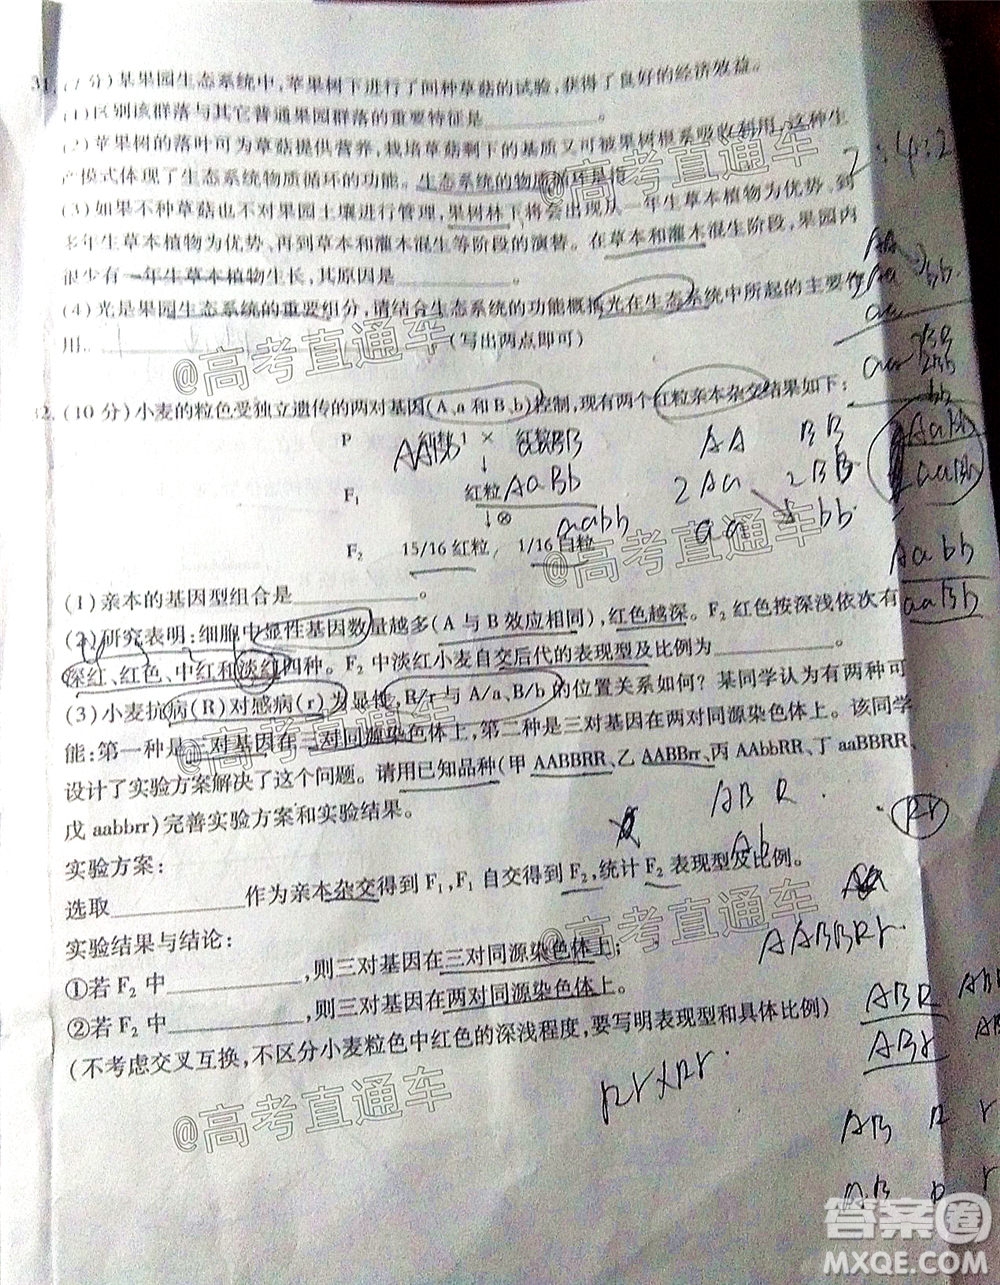 31.(7分)某果园生态系统中,苹果树下进行了间种草菇的试验,获得了良好的经济效益。
(1)区别该群落与其它普通果园群落的重要特征是__________。
(2)苹果树的落叶可为草菇提供营养,栽培草菇剩下的基质又可被果树根系吸收利用,这种生
产模式体现了生态系统物质循环的功能。生态系统的物质循环是指
2:4:2
(3)如果不种草菇也不对果园土壤进行管理,果树林下将会出现从一年生草本植物为优势、到
多年生草本植物为优势、再到草本和灌木混生等阶段的演替。在草本和灌木混生阶段,果园内
很少有一年生草本植物生长,其原因是__________。
(4)光是果园生态系统的重要组分,请结合生态系统的功能概括光在生态系统中所起的主要作
用__________。(写出两点即可)
32.(10分)小麦的粒色受独立遗传的两对基因(A、a和B、b)控制,现有两个红粒亲本杂交结果如下:
P 红粒1 × 红粒
F₁ 红粒 AaBb
↓⊗ aabb
F₂ 15/16红粒, 1/16白粒
AA BB
2Aa 2BB
aa bb
AaBb
aaBb
Aabb
aaBb
(1)亲本的基因型组合是__________。
(2)研究表明:细胞中显性基因数量越多(A与B效应相同),红色越深。F₂红色按深浅依次有
深红、红色、中红和淡红四种。F₂中淡红小麦自交后代的表现型及比例为__________。
(3)小麦抗病(R)对感病(r)为显性,R/r与A/a、B/b的位置关系如何?某同学认为有两种可
能:第一种是三对基因在三对同源染色体上,第二种是三对基因在两对同源染色体上。该同学
设计了实验方案解决了这个问题。请用已知品种(甲AABBRR、乙AABBrr、丙AAbbRR、丁aaBBRR、
戊aabbrr)完善实验方案和实验结果。
ABR
Rr
Ab
实验方案:
选取__________作为亲本杂交得到F₁,F₁自交得到F₂,统计F₂表现型及比例。
实验结果与结论:
AABBRr
①若F₂中__________,则三对基因在三对同源染色体上;
②若F₂中__________,则三对基因在两对同源染色体上。
(不考虑交叉互换,不区分小麦粒色中红色的深浅程度,要写明表现型和具体比例)
ABR
ABr
Rr×Rr
AB R r
AB R r
@高考直通车
@高考直通车
@高考直通车
@高考直通车
@高考直通车
@高考直通车
答案圈
MXQE.COM